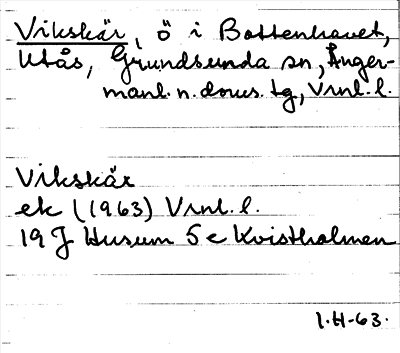 Vikskär, ö i Bottenhavet,
Utås, Grundsunda sn, Ånger-
manl. n. doms. tg, Vrnl. l.
Vikskär
ek (1963) Vrnl. l.
19 J Husum 5 e Kvistholmen
I.H-63.